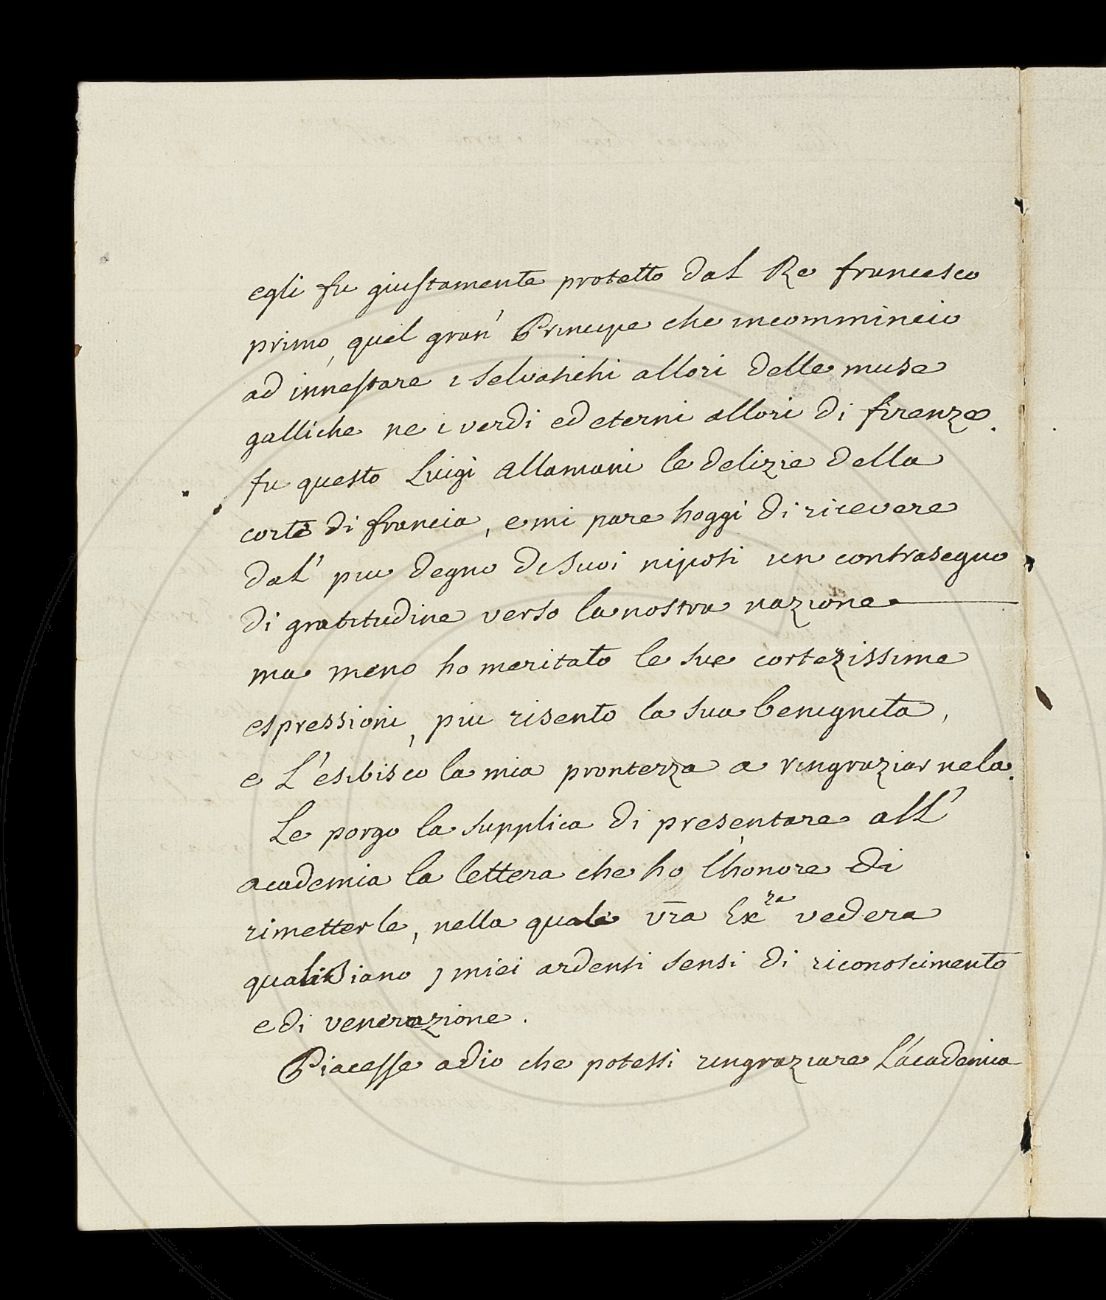 egli fu giustamente protetto dal Re francesco
primo, quel gran' Principe che incomminciò
ad innestare i selvatichi allori delle muse
galliche ne i verdi ed eterni allori di firenze.
fu questo Luigi Allamani le delizie della
corte di francia, e mi pare hoggi di ricevere
dal' più degno de suoi nipoti un contrasegno
di gratitudine verso la nostra nazione.
ma meno ho meritato le sue cortezissime
espressioni, più risento la sua benignita,
e L'esibisco la mia prontezza a ringraziar nela.
Le porgo la supplica di presentare all'
academia la lettera che ho l'honore di
rimetterle, nella quale Vra Ex.za vedera
quali Siano i miei ardenti sensi di riconoscimento
e di venerazione.
Piacesse a dio che potessi ringraziare L'academia